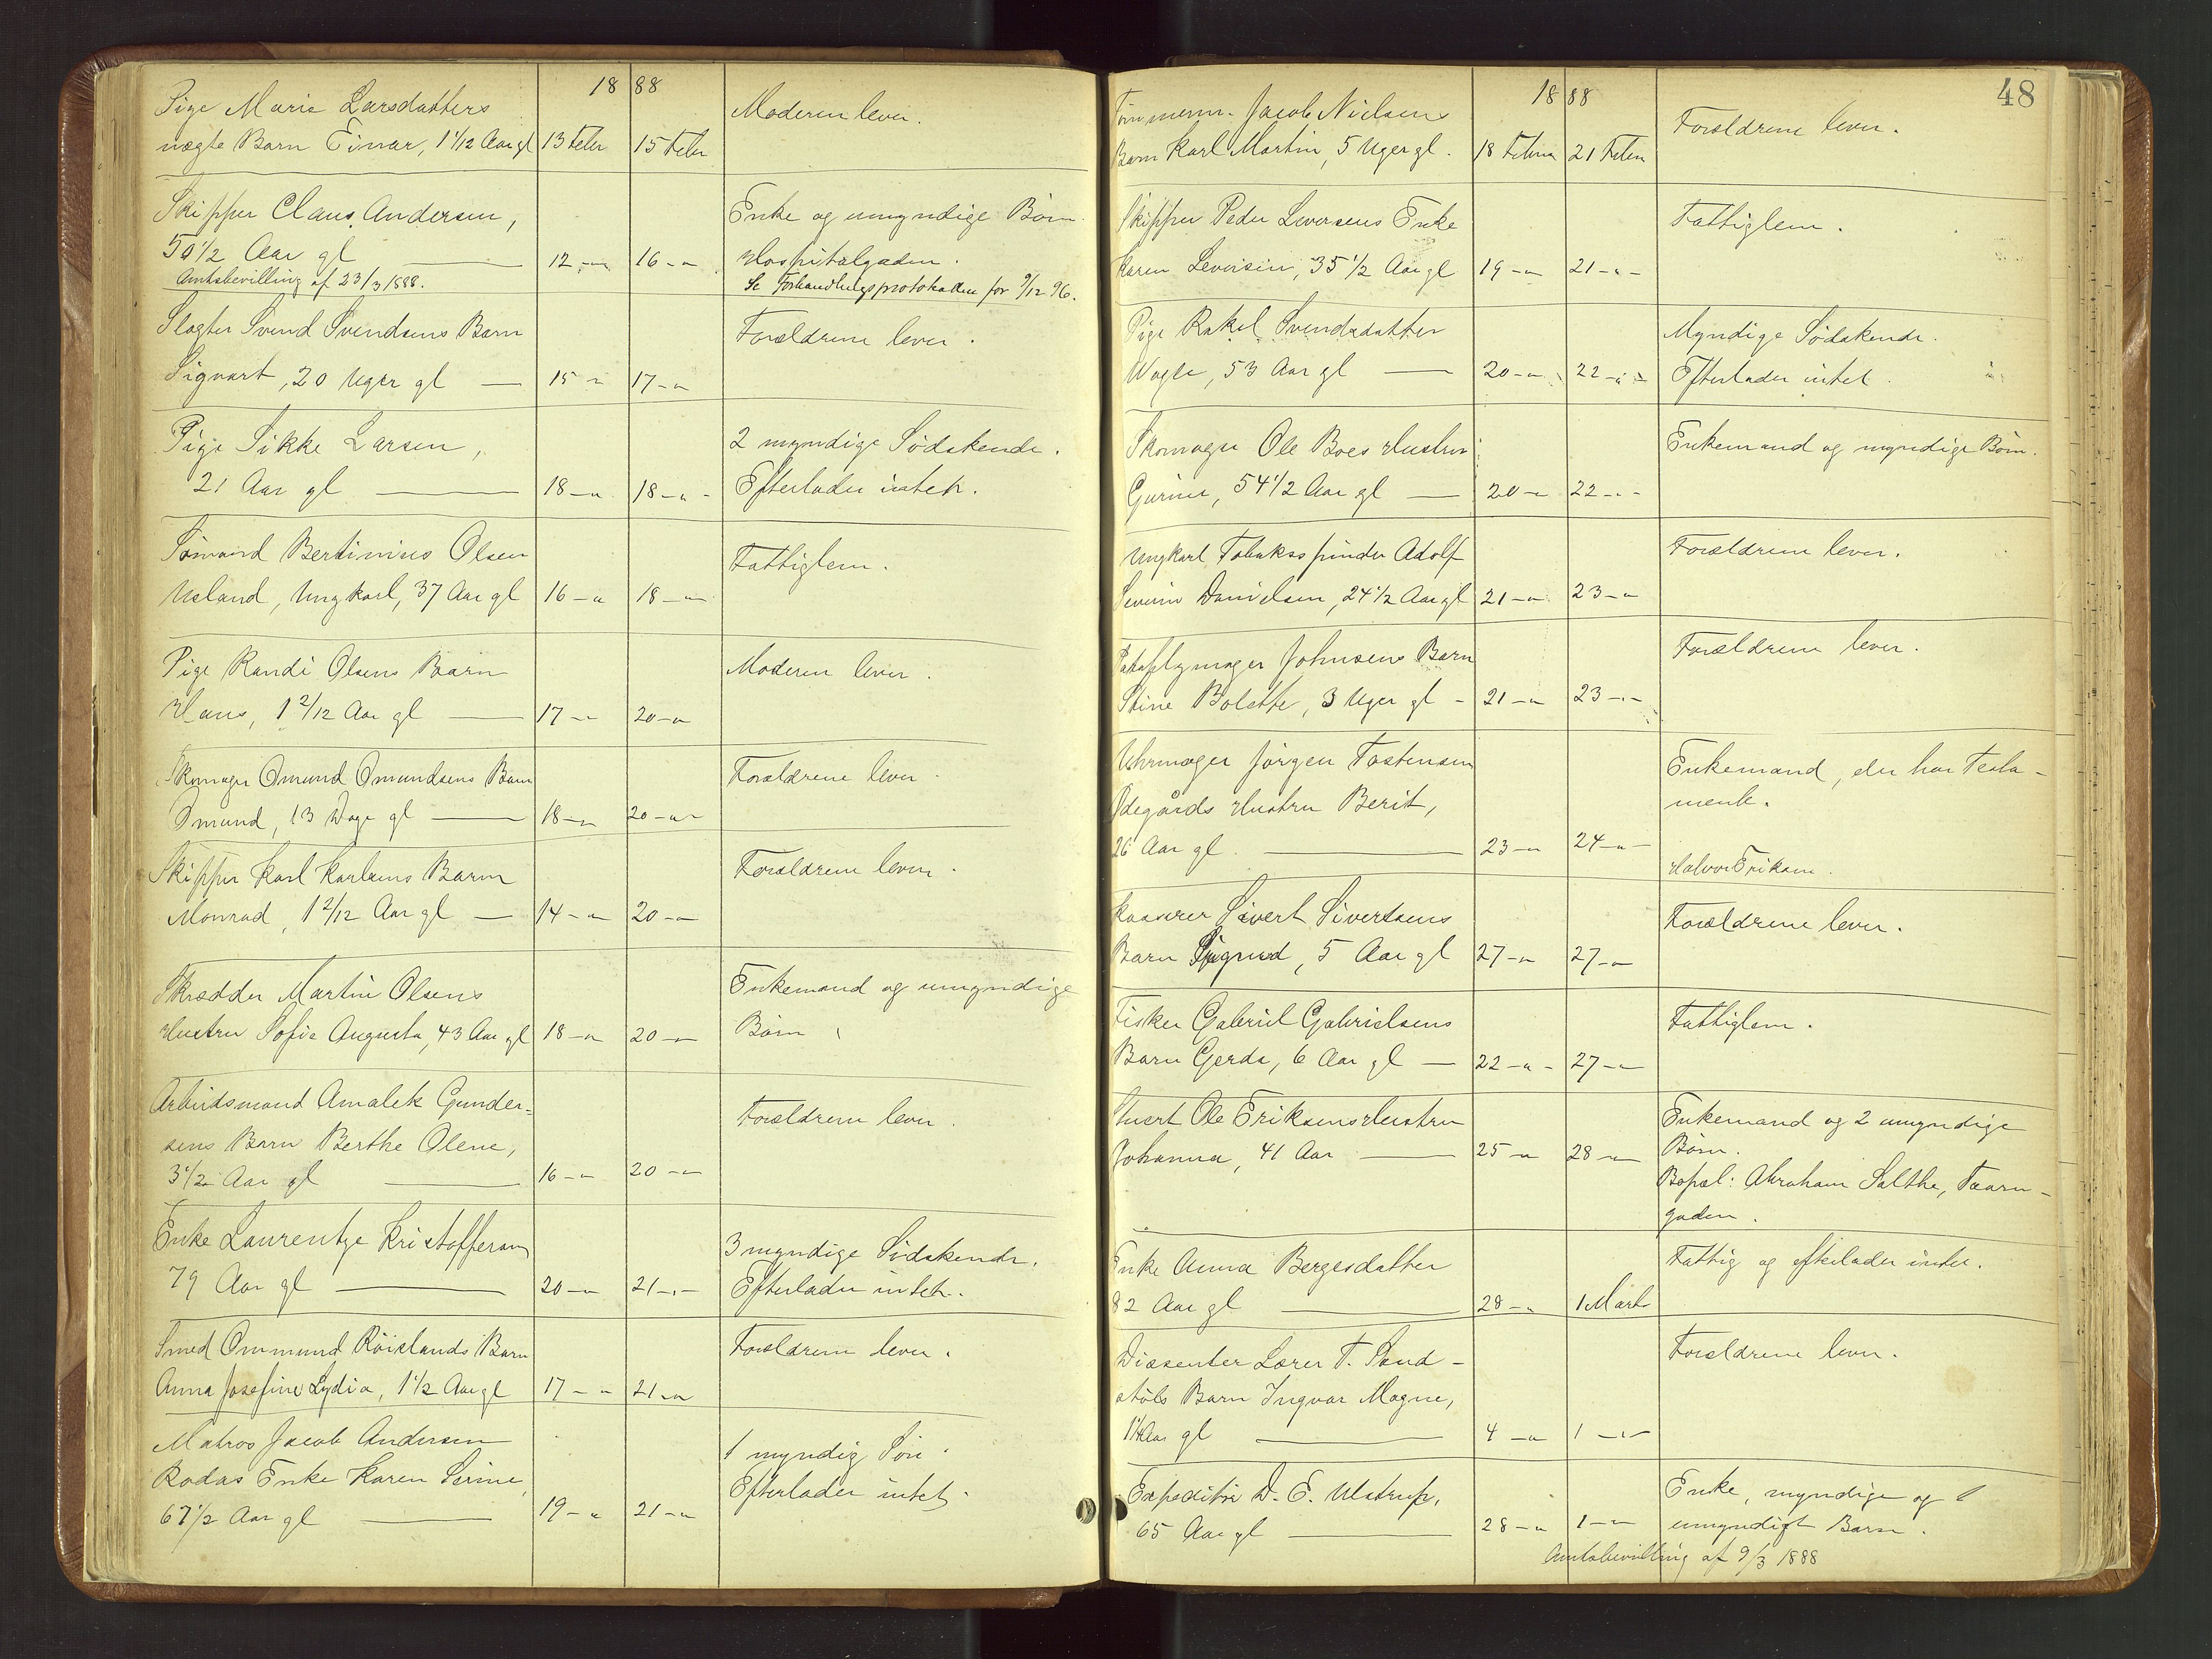 18 88
Pige Marie Larsdatters
uægte Barn Einar, 1 1/12 Aar gl 13 Febr 15 Febr Moderen lever.
Skipper Claus Andersen, Enke og umyndige Børn.
50 1/2 Aar gl — 12 — " 16 — " Hospitalgaden.
Amtsbevilling af 23/3 1888. Se Forhandlingsprotokollen for 9/12 96.
Slagter Svend Svendsens Barn Forældrene lever.
Sigvart, 20 Uger gl — 15 — " 17 — "
Pige Sikke Larsen, 2 myndige Södskende.
21 Aar gl — 18 — " 18 — " Efterlader intet.
Sömand Bertinius Olsen Fattiglem.
Usland, Ungkarl, 37 Aar gl 16 — " 18 — "
Pige Randi Olsens Barn Moderen lever.
Hans, 1 2/12 Aar gl — 17 — " 20 — "
Skomager Omund Omundsens Barn Forældrene lever.
Omund, 13 Dage gl — 18 — " 20 — "
Skipper Karl Karlsens Barn Forældrene lever.
Monrad, 1 2/12 Aar gl — 14 — " 20 — "
Skrædder Martin Olsens Enkemand og umyndige
Hustru Sofie Augusta, 43 Aar gl 18 — " 20 — " Börn
Arbeidsmand Amalek Gunder=
sens Barn Berthe Olene, Forældrene lever.
3 1/2 Aar gl — 16 — " 20 — "
Enke Laurentze Kristoffersen 3 myndige Södskende.
79 Aar gl — 20 — " 21 — " Efterlader intet.
Smed Ommund Röislands Barn Forældrene lever.
Anna Josefine Lydia, 1 1/2 Aar gl 17 — " 21 — "
Matros Jacob Andersen 1 myndig Sön.
Rodas Enke Karen Serine, Efterlader intet.
67 1/2 Aar gl — 19 — " 21 — "
48
18 88
Tömmerm. Jacob Nielsens Forældrene lever.
Barn Karl Martin, 5 Uger gl. 18 Febru 21 Febru
Skipper Peder Leversens Enke Fattiglem.
Karen Leversen, 35 1/2 Aar gl 19 — " 21 — "
Pige Rakel Svendsdatter Myndige Södskende.
Wagle, 53 Aar gl — 20 — " 22 — " Efterlader intet.
Skomager Ole Boes Hustru Enkemand og myndige Börn.
Gurine, 54 1/2 Aar gl — 20 — " 22 — "
Ungkarl Tobaksspinder Adolf Forældrene lever.
Severin Danielsen, 24 1/2 Aar gl 21 — " 23 — "
Johnsens Barn Forældrene lever.
Stine Bolette, 3 Uger gl — 21 — " 23 — "
Uhrmager Jörgen Tostensen Enkemand, der har Testa-
Ödegårds Hustru Berit, mente.
26 Aar gl. — 23 — " 24 — " Halvor Eriksen.
Kasserer Sivert Sivertsens Forældrene lever.
Barn Sigurd, 5 Aar gl 27 — " 27 — "
Fisker Gabriel Gabrielsens Fattiglem.
Barn Gerda, 6 Aar gl — 22 — " 27 — "
Stuert Ole Eriksens Hustru Enkemand og 2 umyndige
Johanna, 41 Aar — 25 — " 28 — " Börn.
Bopæl: Abraham Salthe, Taarn-
gaden.
Enke Anna Bergesdatter Fattig og efterlader intet.
82 Aar gl — 28 — " 1 Marts
Dissenter Lærer T. Sand- Forældrene lever.
stöls Barn Ingvar Magne,
Aar gl — 4 — " 1 — "
Expeditör D. E. Ulstrup, Enke, myndige og 1
65 Aar gl — 28 — " 1 — " umyndigt Barn.
Amtsbevilling af 9/3 1888